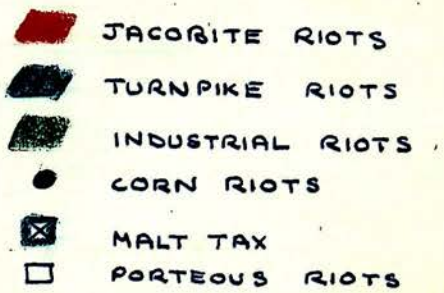 JACOBITE RIOTS
TURNPIKE RIOTS
INDUSTRIAL RIOTS
CORN RIOTS
MALT TAX
PORTEOUS RIOTS